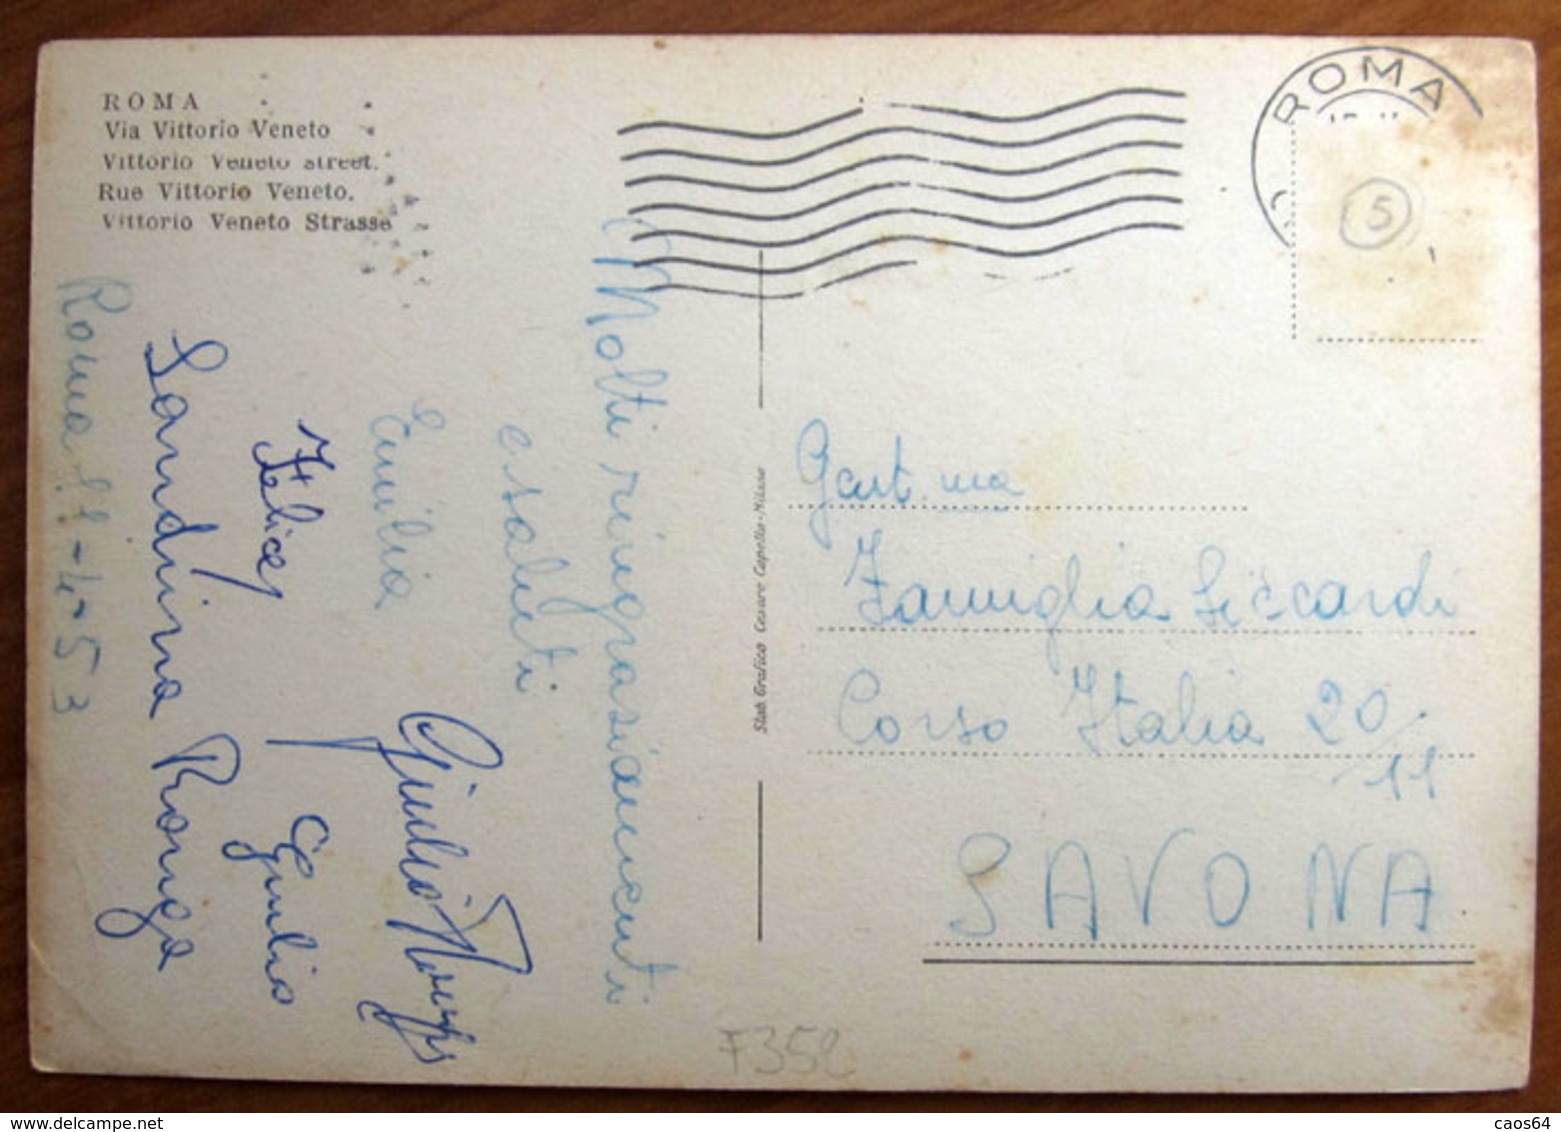 ROMA
Via Vittorio Veneto
Vittorio Veneto street.
Rue Vittorio Veneto.
Vittorio Veneto Strasse
ROMA
5
Molti ringraziamenti
e saluti
Emilia
Felice
Giulio
Sandrina
Roma 11-4-53
Stab. Grafico Cesare Capello-Milano
Gent.ma
Famiglia Siccardi
Corso Italia 20/11
SAVONA
F352
delcampe.net
caos64